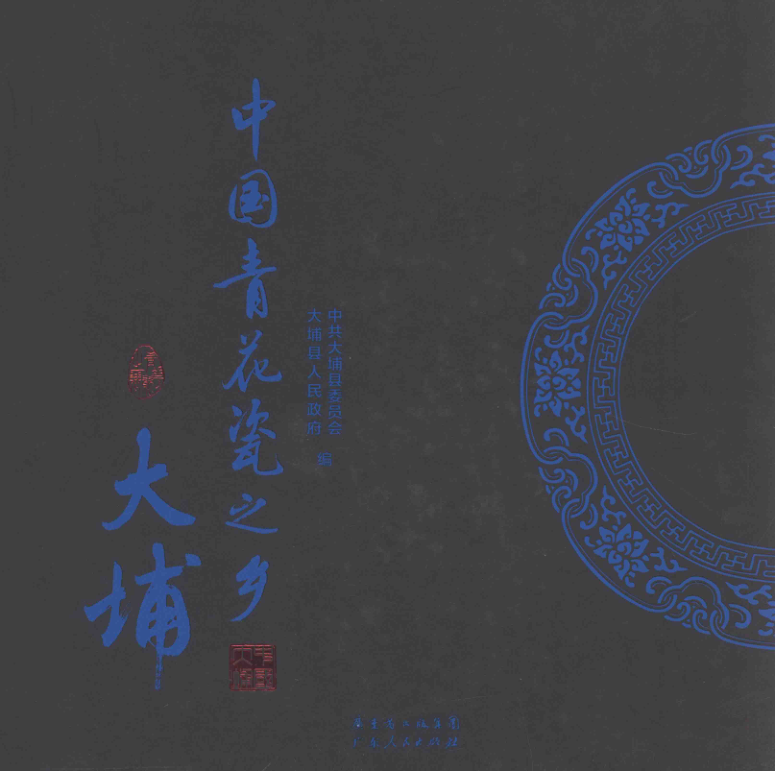 中国青花瓷之乡
大埔
中共大埔县委员会
大埔县人民政府
编
广东人民出版社